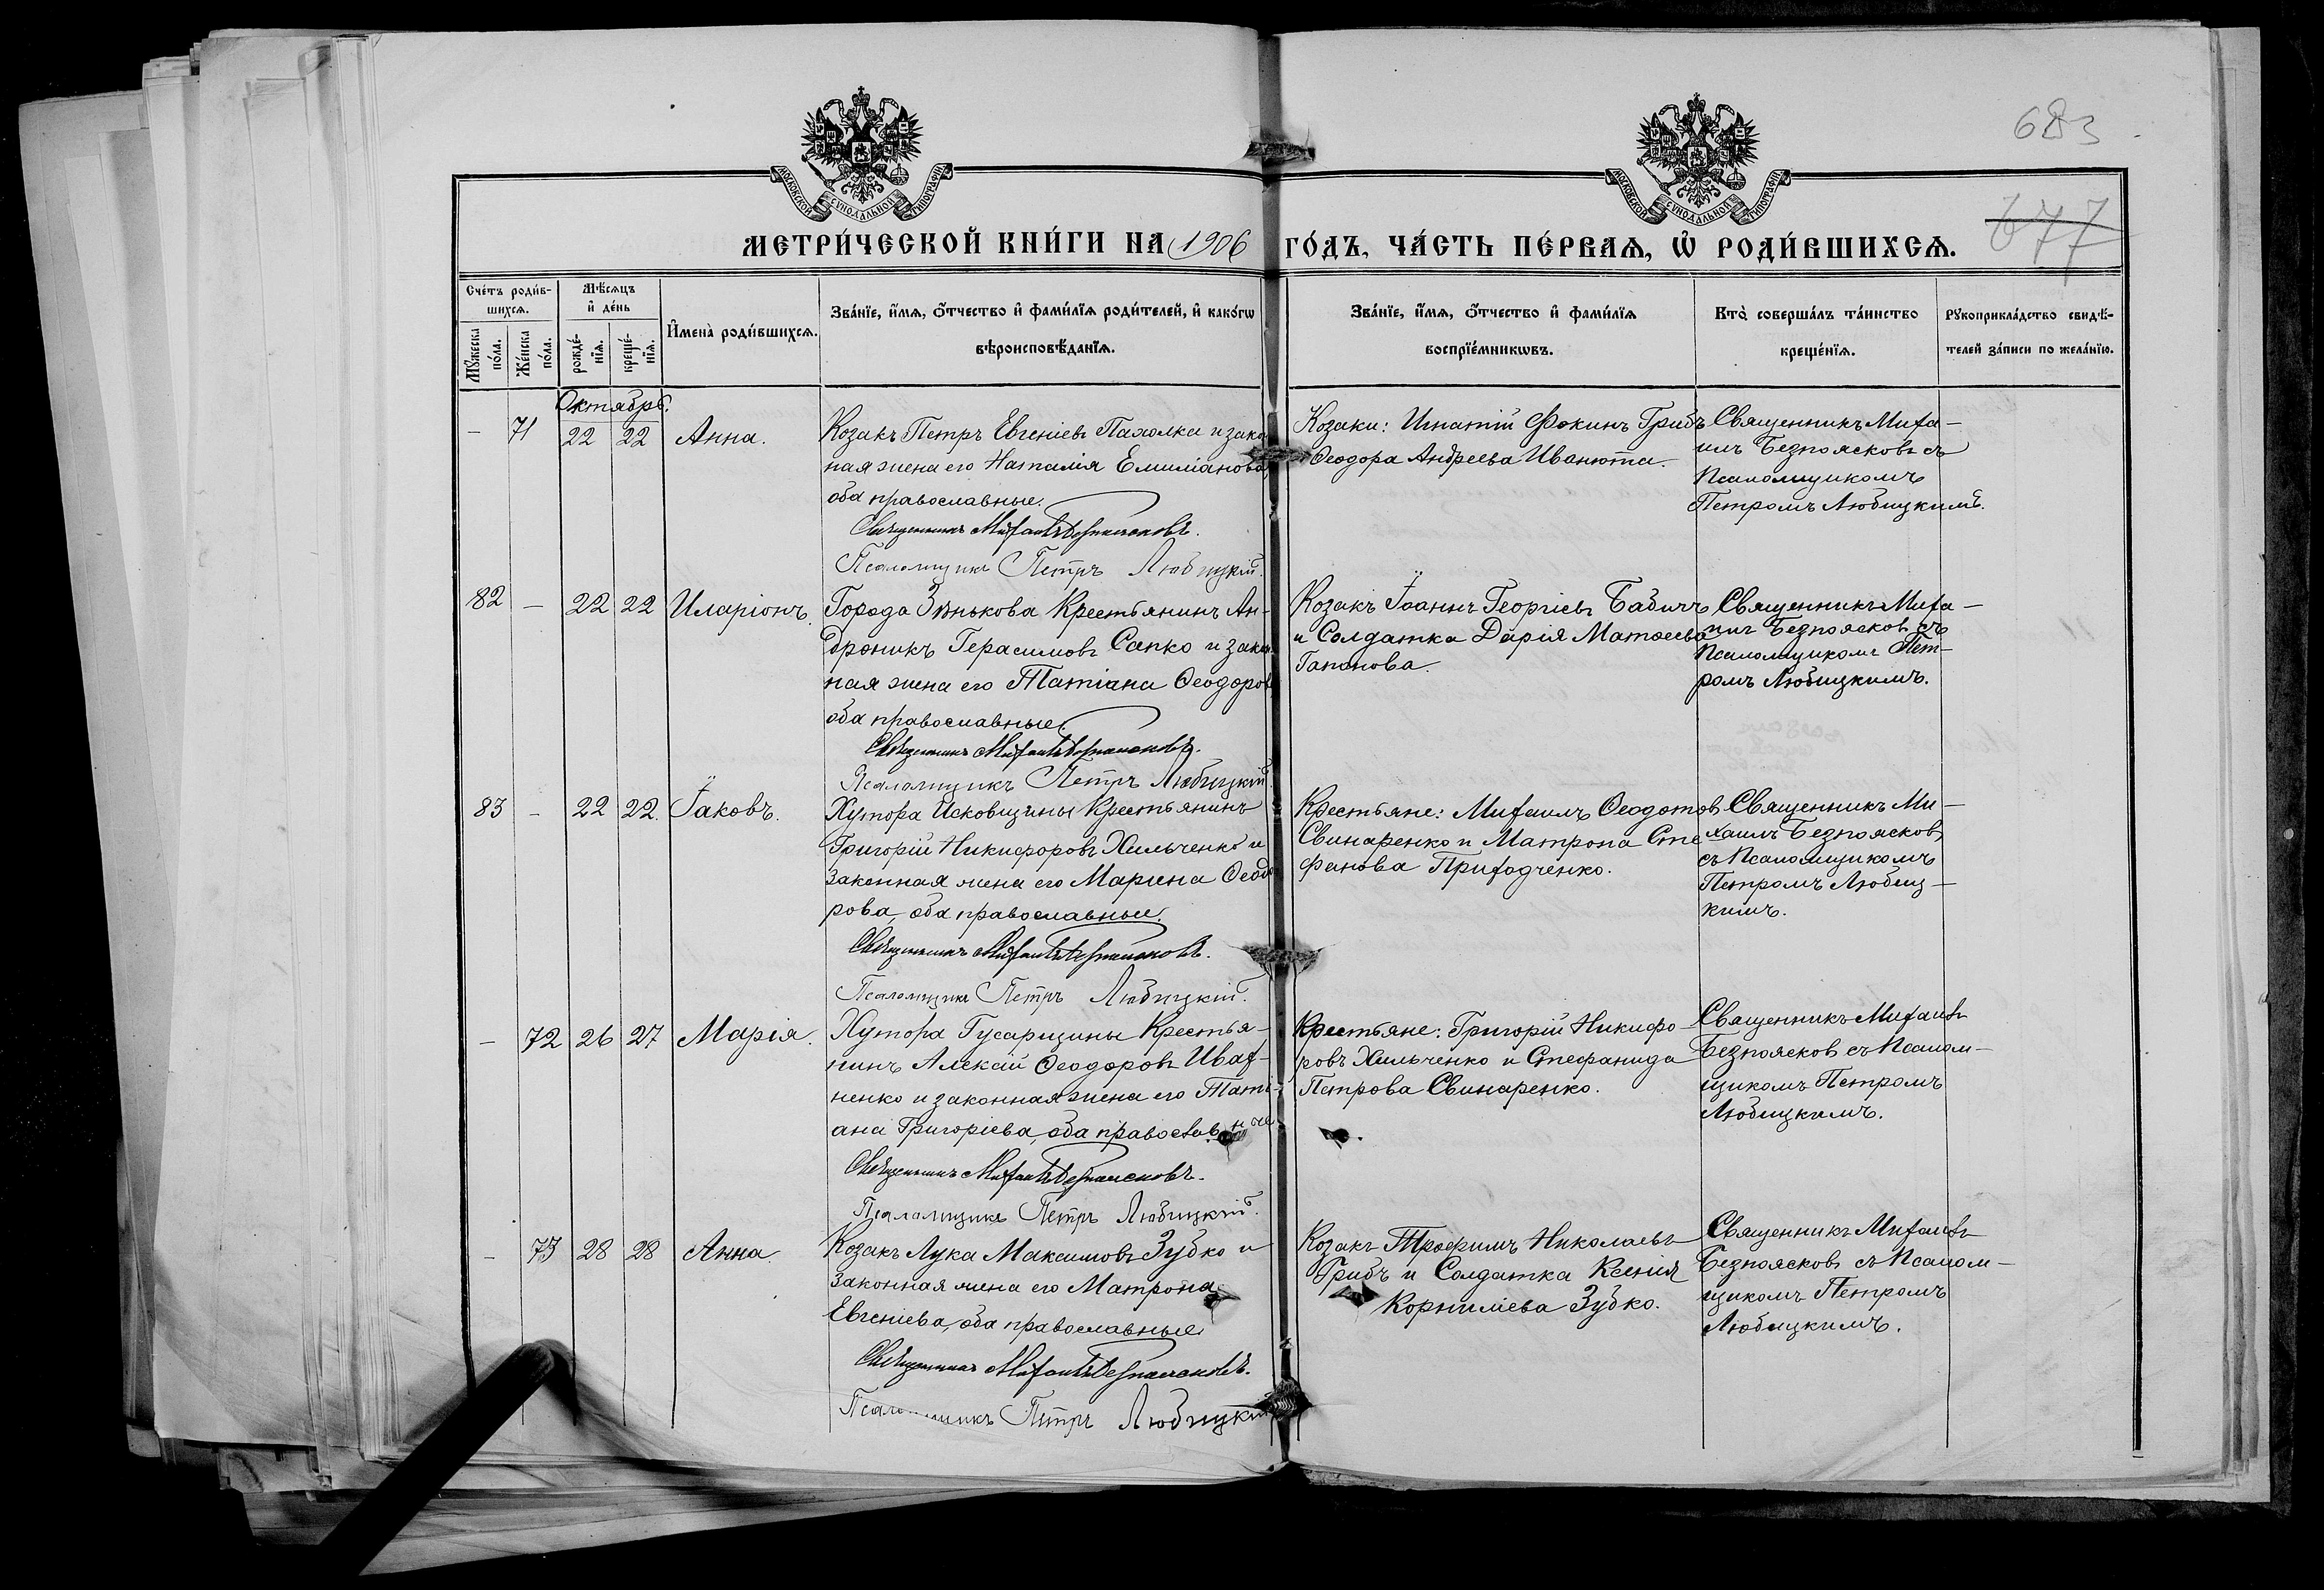 683
677
МОСКОВСКОЙ СѴНОДАЛЬНОЙ ТИПОГРАФІИ
МОСКОВСКОЙ СѴНОДАЛЬНОЙ ТИПОГРАФІИ
МЕТРИ́ЧЕСКОЙ КНИ́ГИ НА 1906 ГО́ДЪ, ЧА́СТЬ ПЕ́РВАѦ, Ѡ РОДИ́ВШИХСѦ.
Сче́тъ роди́в-
шихсѧ.
Мꙋ́жеска по́ла.
Же́нска по́ла.
Мѣ́сѧцъ
и҆ де́нь
рожде́-
нїѧ.
креще́-
нїѧ.
И҆мена̀ роди́вшихсѧ.
Зва́нїе, и҆́мѧ, ѻ҆́тчество и҆ фами́лїѧ роди́телей, и҆ како́гѡ
вѣроисповѣ́данїѧ.
Зва́нїе, и҆́мѧ, ѻ҆́тчество и҆ фами́лїѧ
воспрїе́мникѡвъ.
Кто̀ соверша́лъ та́инство
креще́нїѧ.
Рꙋкоприкла́дство свидѣ́-
телей за́писи по жела́нїю.
Октябрь.
— 71 22 22 Анна.
Козакъ Петръ Евгеніевъ Пахолка и закон
ная жена его Наталія Емиліанова,
оба православные.
Священникъ Михаилъ Безпоясковъ.
Псаломщикъ Петръ Любицкій.
Козаки: Игнатій Фокинъ Грибъ
Ѳеодора Андреева Иванюта.
Священникъ Миха—
илъ Безпоясковъ съ
Псаломщикомъ
Петромъ Любицкимъ.
82 — 22 22 Иларіонъ.
Города Зѣнькова Крестьянинъ Ан-
дроникъ Герасимовъ Сапко и закон
ная жена его Татіана Ѳеодоров
оба православные
Священникъ Михаилъ Безпоясковъ.
Псаломщикъ Петръ Любицкій
Козакъ Іоаннъ Георгіевъ Бабичъ
и Солдатка Дарія Матѳеева
Гапонова.
Священникъ Миха—
илъ Безпоясковъ съ
Псаломщикомъ Пет—
ромъ Любицкимъ.
83 — 22 22. Іаковъ.
Хутора Исковщины Крестьянинъ
Григорій Никифоровъ Хильченко и
законная жена его Марина Ѳеодо
рова, оба православные.
Священникъ Михаилъ Безпоясковъ.
Псаломщикъ Петръ Любицкій.
Крестьяне: Михаилъ Ѳеодотовъ
Свинаренко и Матрона Сте
фанова Приходченко.
Священникъ Ми—
хаилъ Безпоясковъ
съ Псаломщикомъ
Петромъ Любиц—
кимъ.
— 72 26 27 Марія.
Хутора Гусарщины Крестья—
нинъ Алексій Ѳеодоровъ Ивах-
ненко и законная жена его Таті-
ана Григоріева, оба православные
Священникъ Михаилъ Безпоясковъ.
Псаломщикъ Петръ Любицкій.
Крестьяне: Григорій Никифо
ровъ Хильченко и Стефанида
Петрова Свинаренко.
Священникъ Михаилъ
Безпоясковъ съ Псалом—
щикомъ Петромъ
Любицкимъ.
— 73 28 28 Анна.
Козакъ Лука Максимовъ Зубко и
законная жена его Матрона
Евгеніева, оба православные
Священникъ Михаилъ Безпоясковъ.
Псаломщикъ Петръ Любицкій
Козакъ Трофимъ Николаевъ
Грибъ и Солдатка Ксенія
Корниліева Зубко.
Священникъ Михаилъ
Безпоясковъ съ Псалом—
щикомъ Петромъ
Любицкимъ.